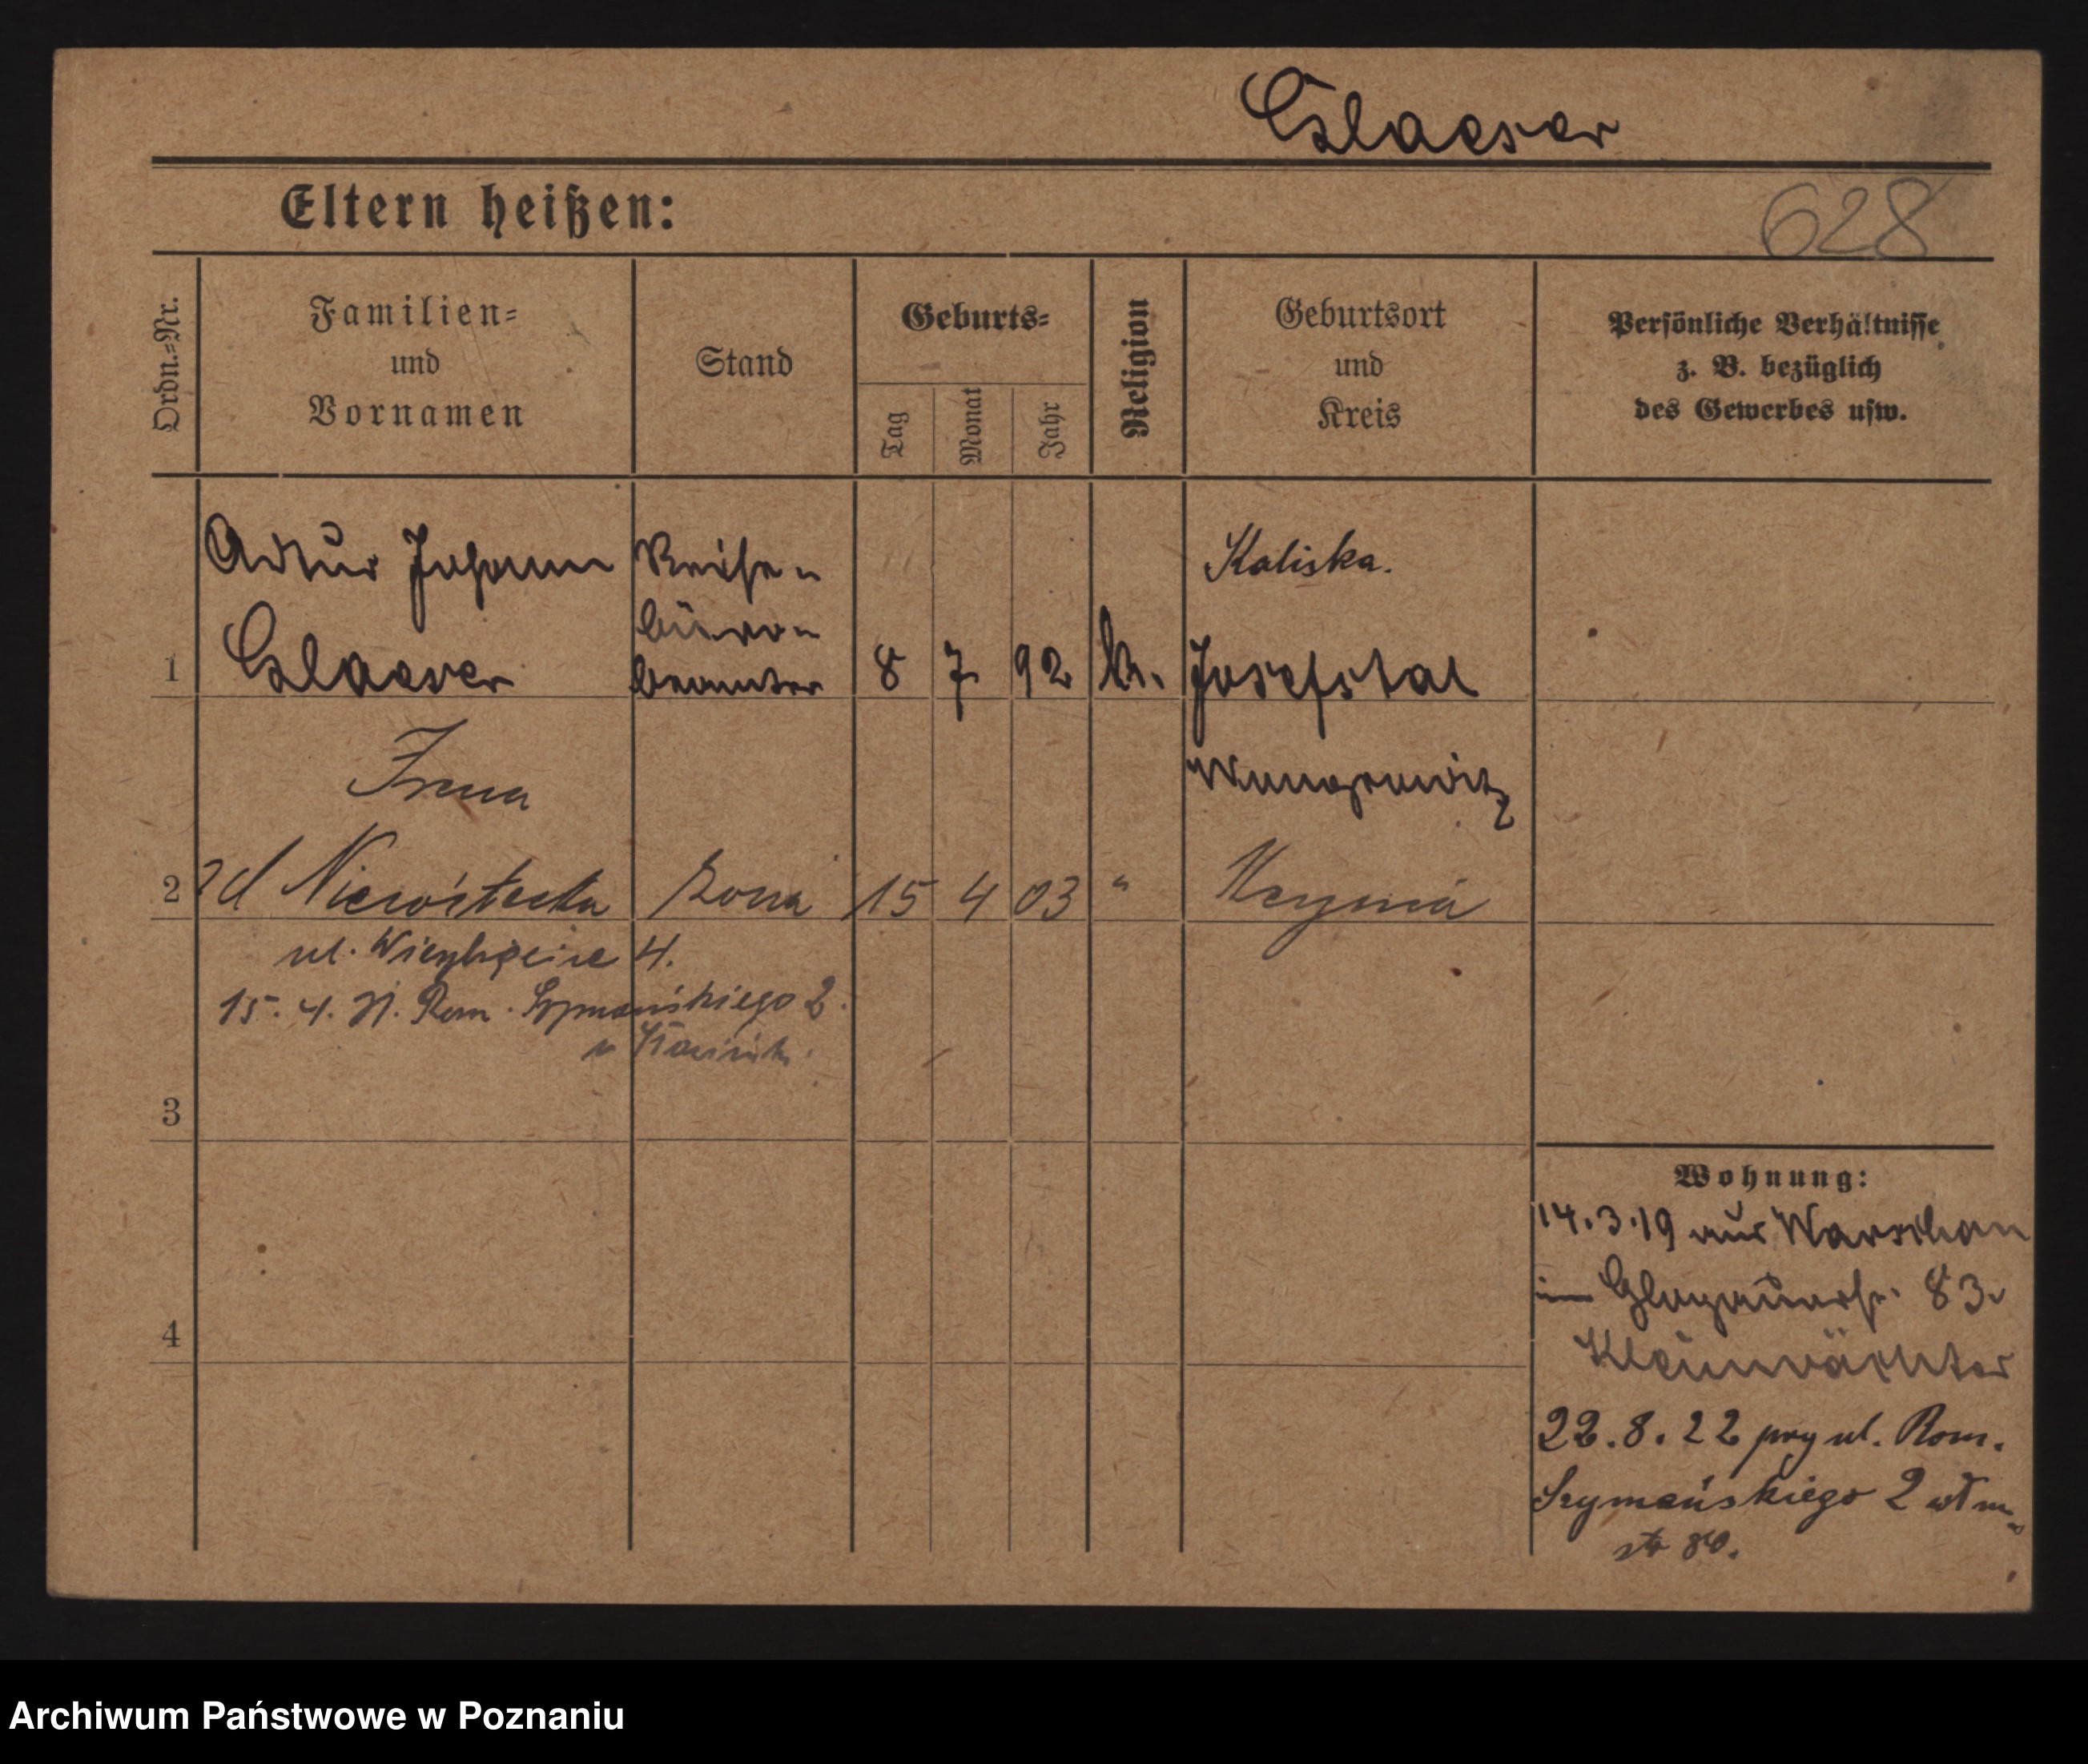 Glaeser
Eltern heißen:
628
Ordn.=Nr.
Familien=
und
Vornamen
Stand
Geburts=
Tag
Monat
Jahr
Religion
Geburtsort
und
Kreis
Persönliche Verhältnisse
z. B. bezüglich
des Gewerbes usw.
1
Artur Johann
Glaeser
Reise-
büro-
beamter
8 7 92
k.
Kaliska.
Josefstal
Wongrowitz
Irena
2
zd
żona
15 4 03
"
Kcynia
ul. 4.
15. 4. Rom. Szymańskiego 2.
3
4
Wohnung:
14.3.19 aus Warschau
in Glogauerstr. 83.
Kleinwächter
22.8.22 przy ul. Rom.
Szymańskiego 2
80.
Archiwum Państwowe w Poznaniu